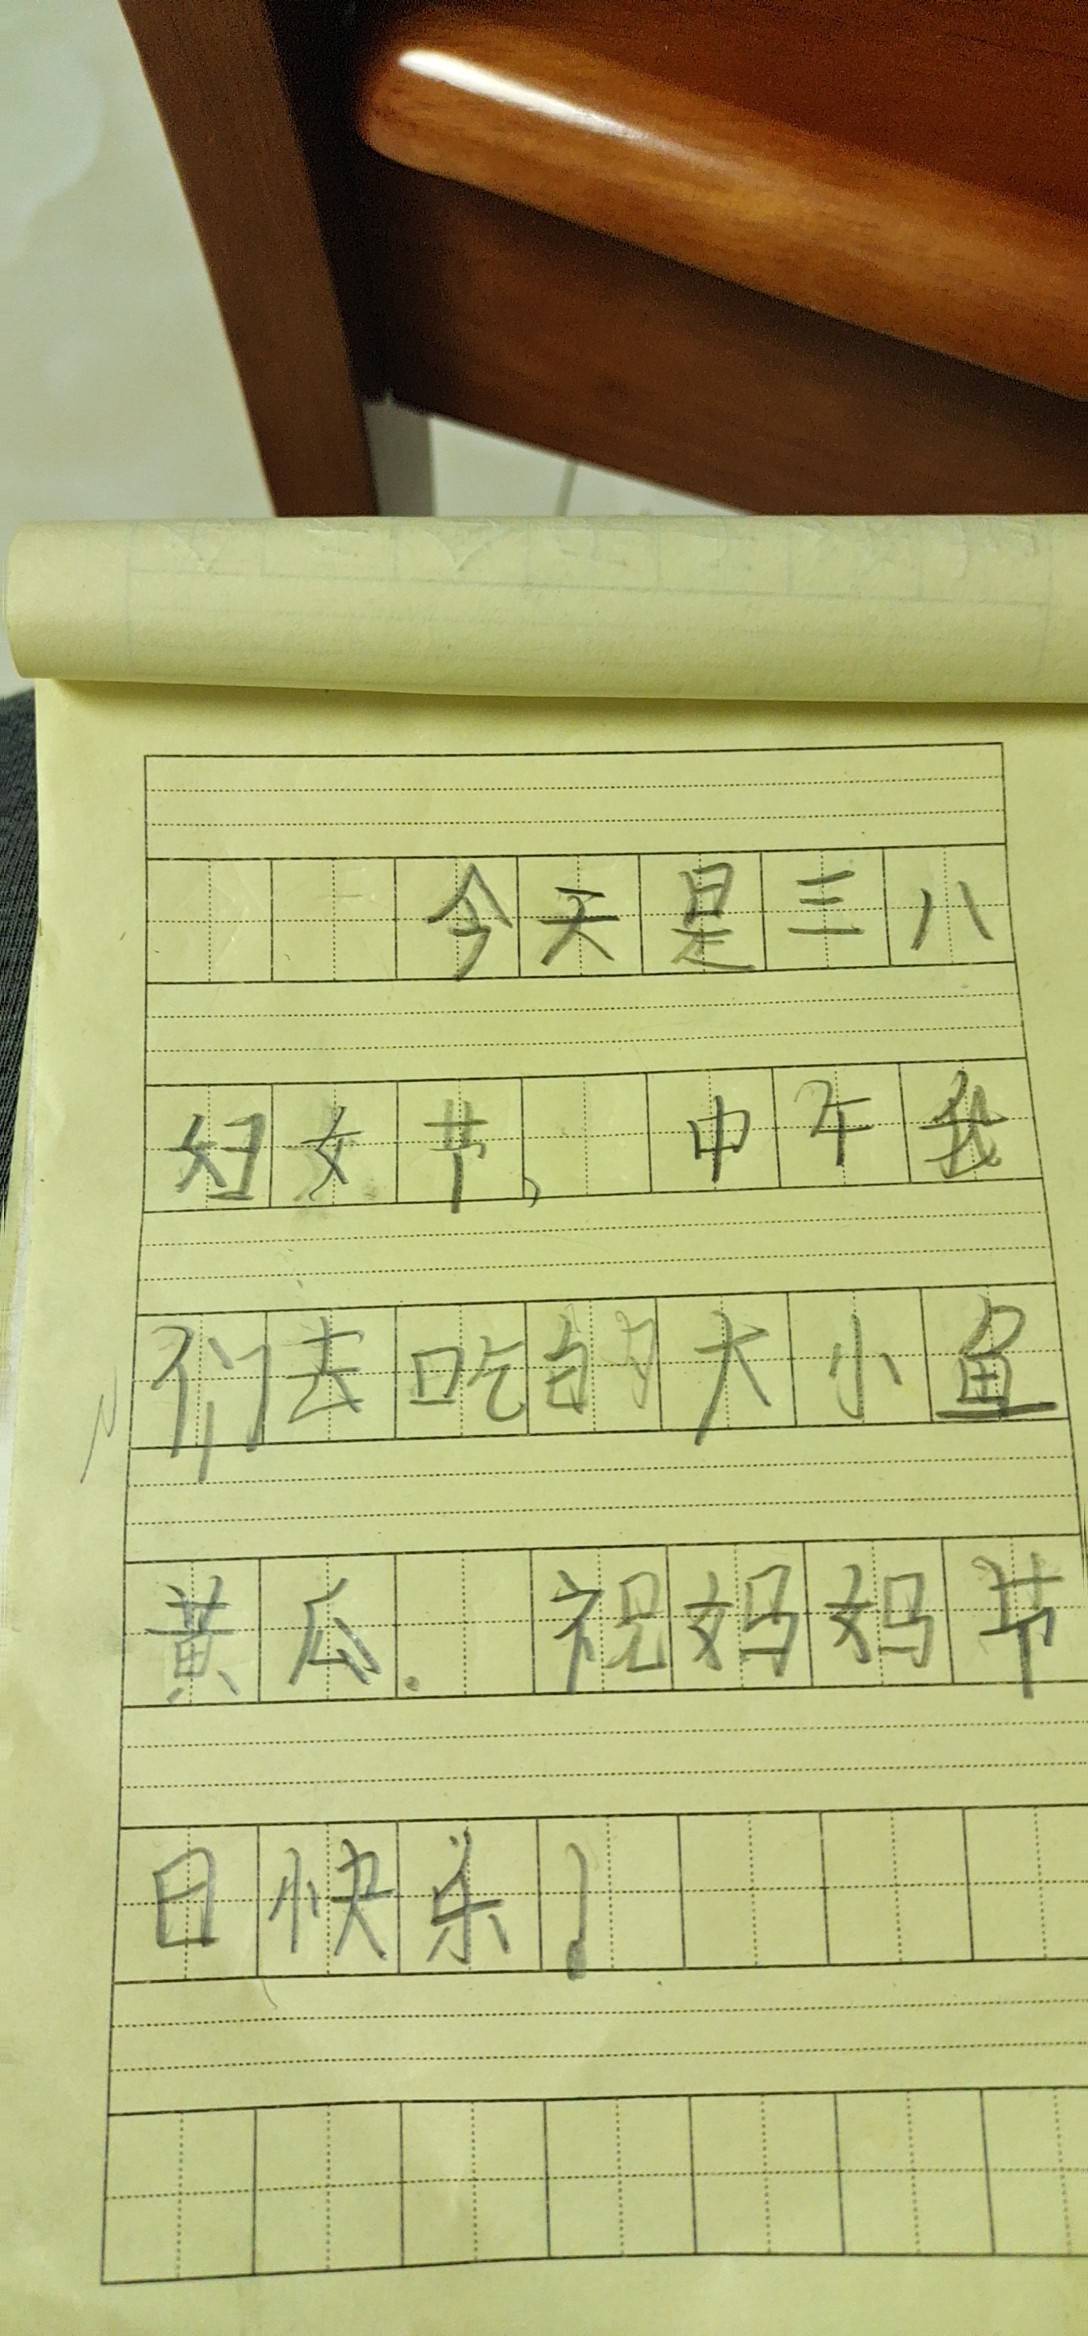 今天是三八
妇女节，中午我
们去吃的大小鱼
黄瓜.祝妈妈节
日快乐！